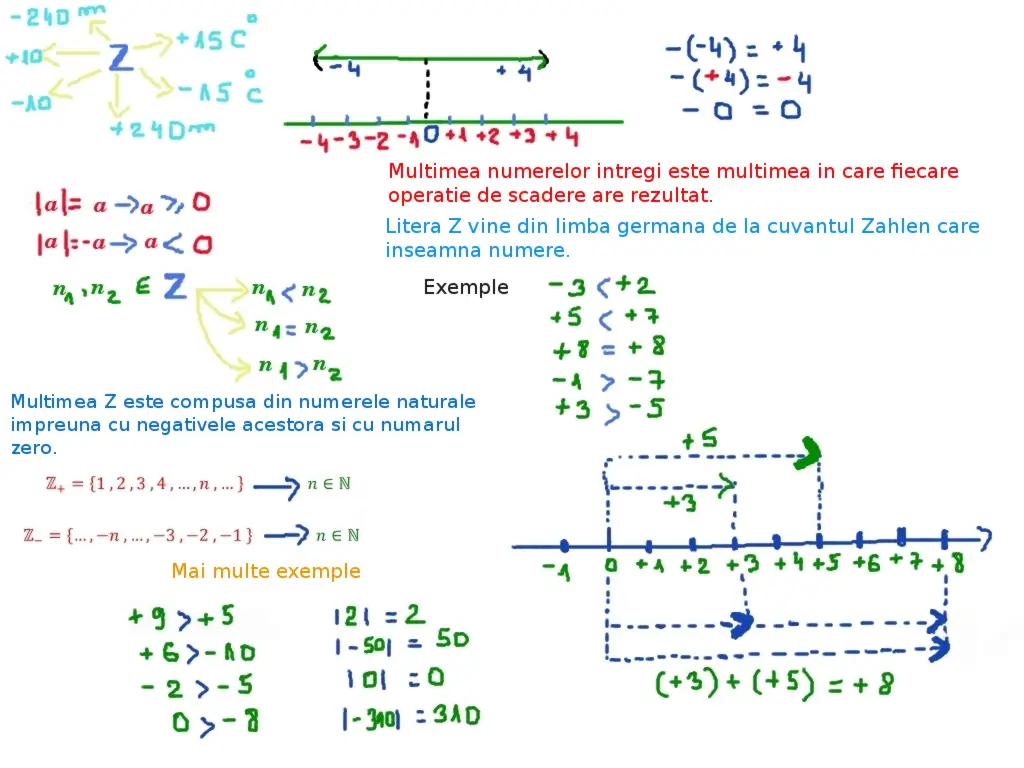 -240 m
+10
Z
+15 C°
-10
-15 °C
+240m
-4
+4
-4 -3 -2 -1 0 +1 +2 +3 +4
-(-4) = +4
-(+4) = -4
- 0 = 0
Multimea numerelor intregi este multimea in care fiecare
operatie de scadere are rezultat.
Litera Z vine din limba germana de la cuvantul Zahlen care
inseamna numere.
|a|= a → a ⩾ 0
|a|=-a → a < 0
n₁, n₂ ∈ Z
n₁ < n₂
n₁ = n₂
n₁ > n₂
Exemple
-3 < +2
+5 < +7
+8 = +8
-1 > -7
+3 > -5
Multimea Z este compusa din numerele naturale
impreuna cu negativele acestora si cu numarul
zero.
ℤ₊ = {1 ,2 ,3 ,4 , ...,n , ... } → n ∈ ℕ
ℤ₋ = {... ,-n , ... ,-3 ,-2 ,-1 } → n ∈ ℕ
Mai multe exemple
+9 > +5
+6 > -10
-2 > -5
0 > -8
|2| = 2
|-50| = 50
|0| = 0
|-310| = 310
+5
+3
-1 0 +1 +2 +3 +4 +5 +6 +7 +8
(+3) + (+5) = +8